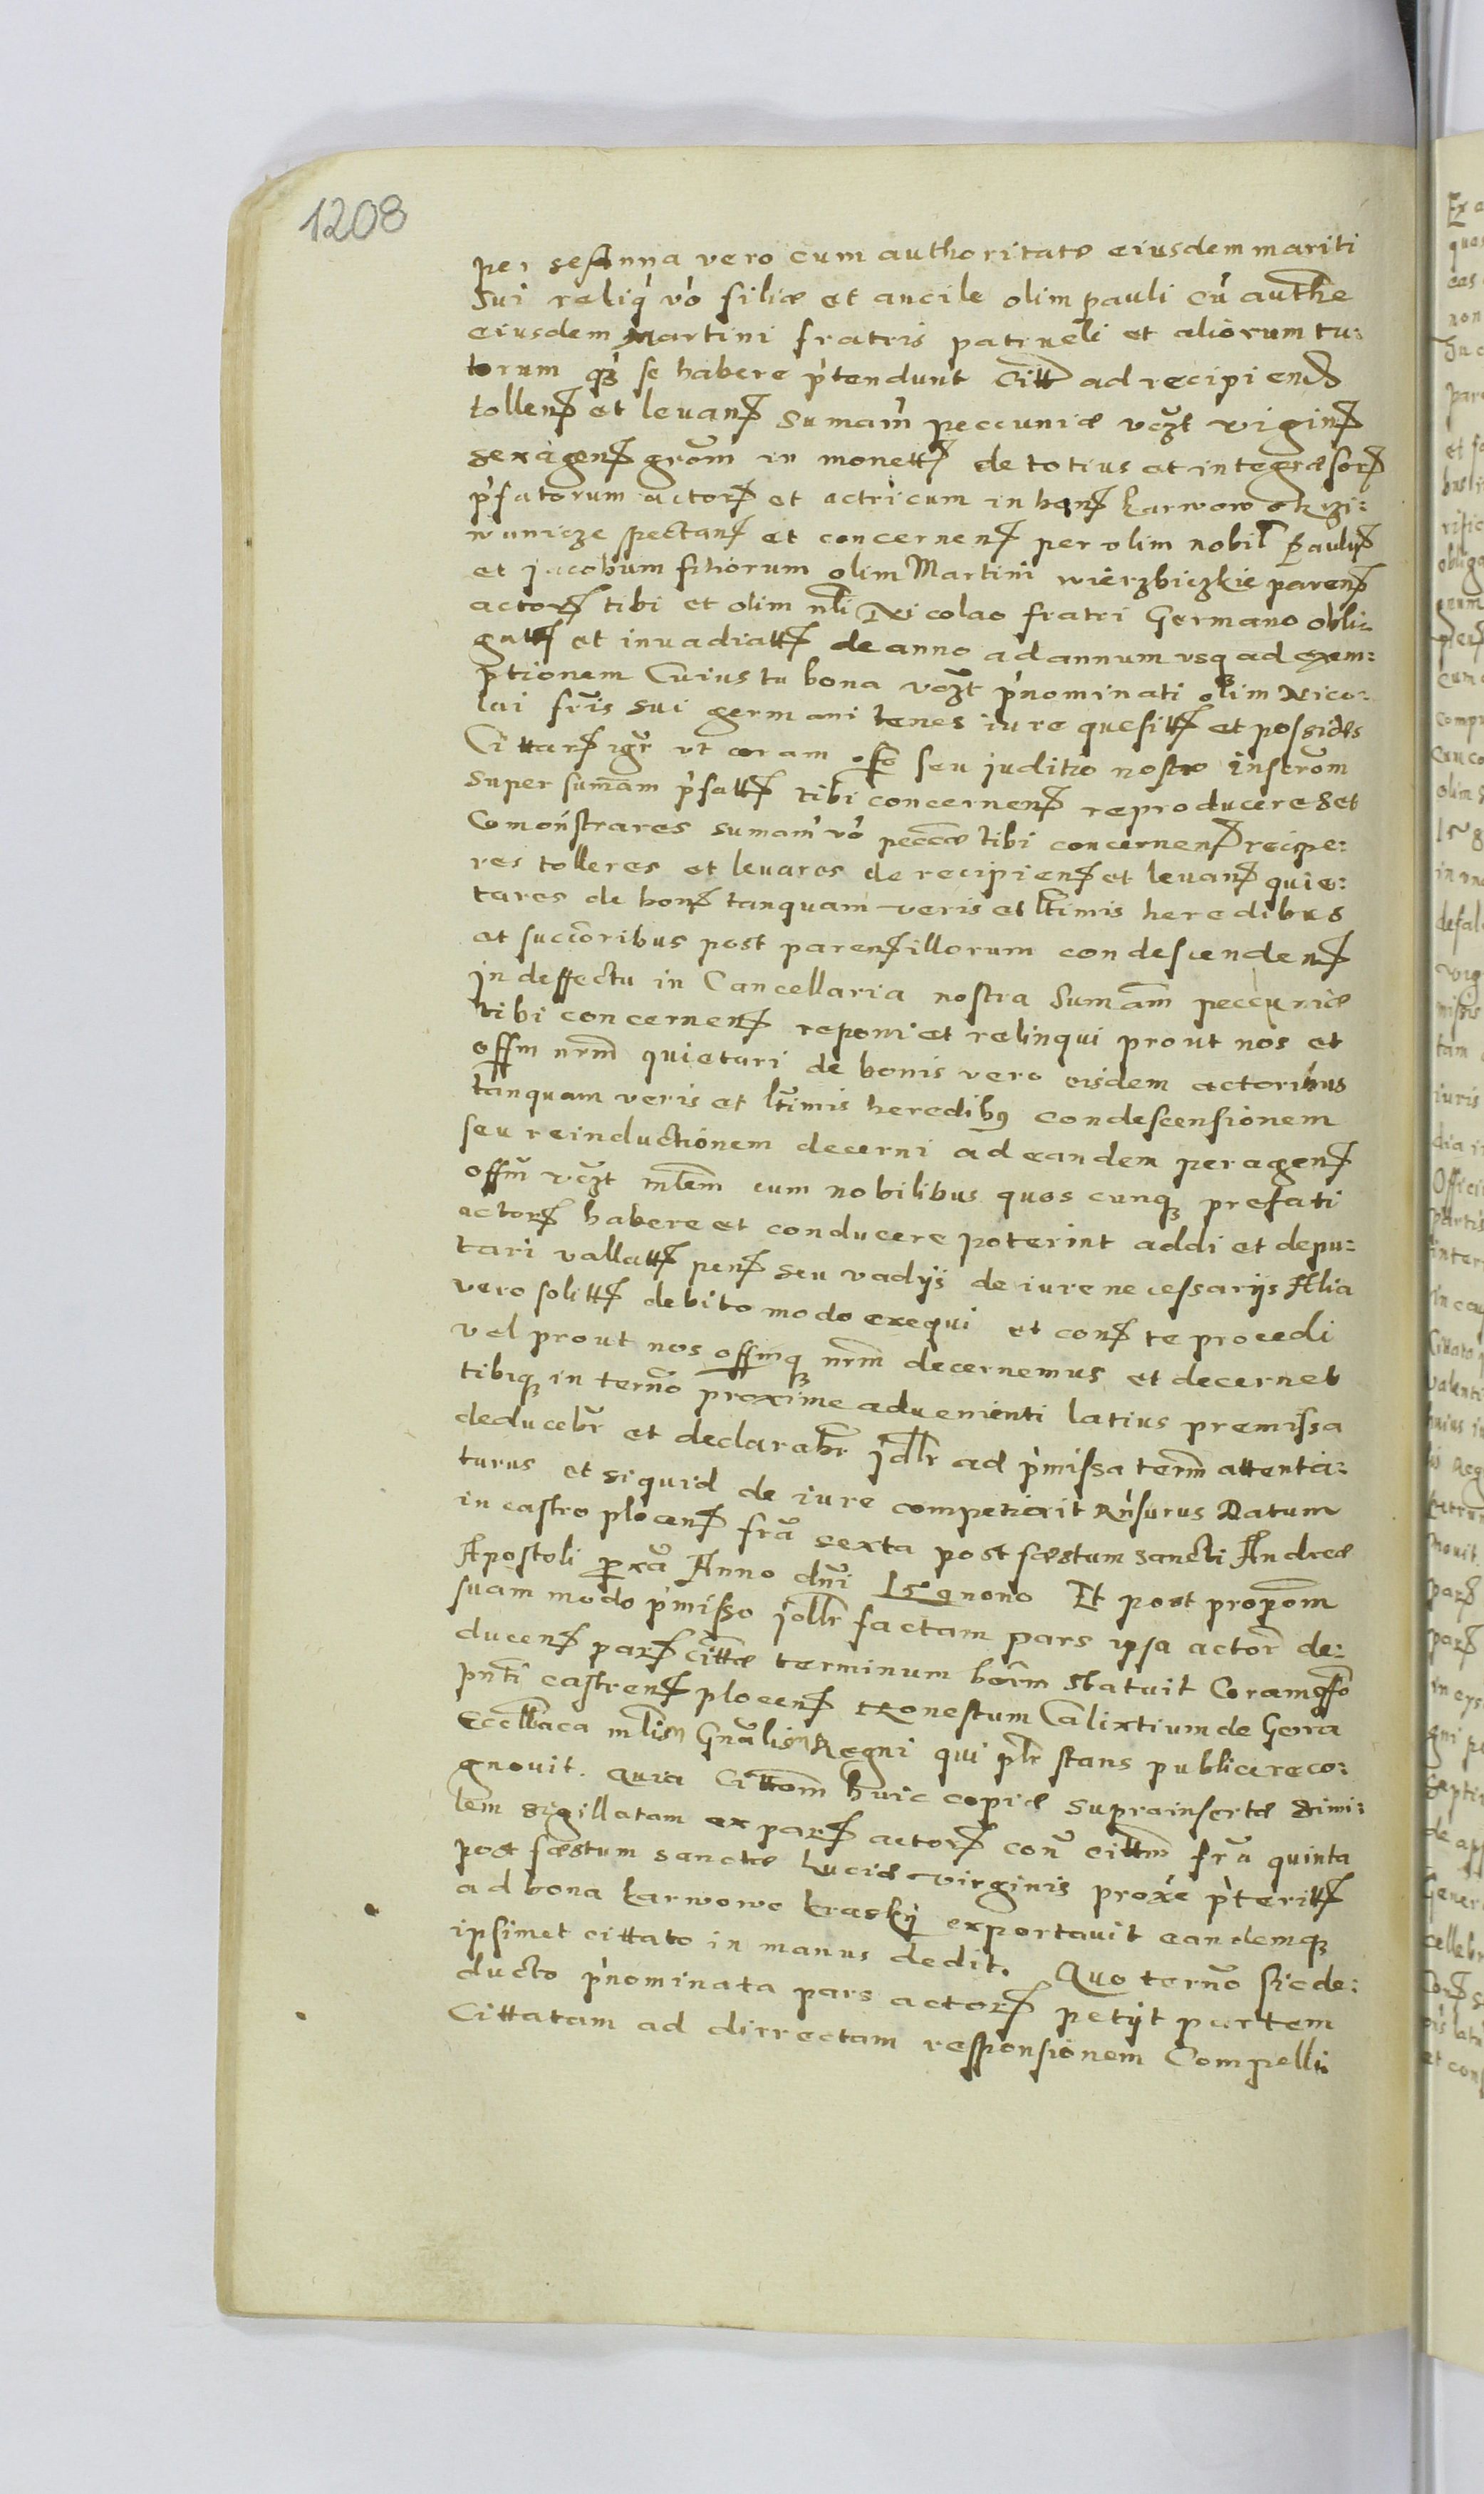 1208
per se Anna vero cum authoritate eiusdem mariti
Sui reliq vo filiæ et ancile olim pauli cu authe
eiusdem Martini fratris patrueli et aliorum tu:
torum qz se habere ptendunt Citt ad recipiend
tollen et levan Sumam peccuniæ vczt vigin
sexagen grom in monett de totius et integræ sor
pfatorum actor et actricum in bon karwow
wunicze spectan et concernen per olim nobil Paulu
et jacobum filiorum olim Martini wierzbiczkie paren
actor tibi et olim nli Nicolao fratri Germano obli:
gatt et invadiatt de anno ad annum vsq ad exem:
ptionem Cuius tu bona vczt pnominati olim Nico:
lai fris sui germani tenes iure quesitt et possides
Cittar igr vt coram offo seu juditio nostro inscrom
super sumam pfatt tibi concernen reproduceres et
Comonstrares sumam vo peccæ tibi concernen recipe:
res tolleres et levares de recipien et levan quie:
tares de bon tanquam veris et ltimis heredibus
et succoribus post paren illorum condescenden
in deffectu in Cancellaria nostra Sumam peccuniæ
tibi concernen reponi et relinqui prout nos et
offm nrm quietari de bonis vero eisdem actoribus
tanquam veris et ltimis heredibq condescensionem
seu reinductionem decerni ad eandem peragen
offm vczt mlem cum nobilibus quos cunqz prefati
actor habere et conducere poterint addi et depu:
tari vallatt pen seu vadijs de iure necessarijs Alia
vero solitt debito modo exequi et con te procedi
vel prout nos offmqz nrm decernemus et decernet
tibiqz in termo proxime advenienti latius premissa
deducebr et declarabr jdlr ad pmissa term attenta:
turus et si quid de iure competierit Rnsurus Datum
in castro plocen fra sexta post fæstum sancti Andreæ
Apostoli pxa Anno dni 15 nono Et post propom
suam modo pmisso jdlr factam pars ipsa actor de:
ducen par cittæ terminum horm statuit Coram offo
pnti castren plocen Honestum Calixtium de Gorra
mlism Gnalism Regni qui plr stans publice reco:
gnovit. quia Cittom huic copiæ supra insertæ simi:
lem sigillatam ex par actor con cittm fra quinta
post fæstum sanctæ Luciæ virginis proxe pteritt
ad bona karwowo krasky exportavit eandemqz
ipsimet cittato in manus dedit. Quo termo sic de:
ducto pnominata pars actor petijt partem
Cittatam ad dirrectam responsionem Compelli